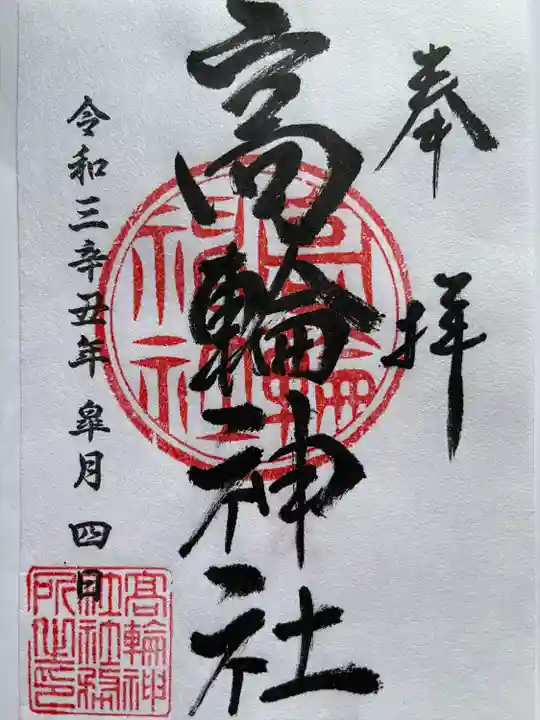 奉拝
高輪神社
令和三辛丑年皐月四日
高輪神社
高輪神社社務所之印